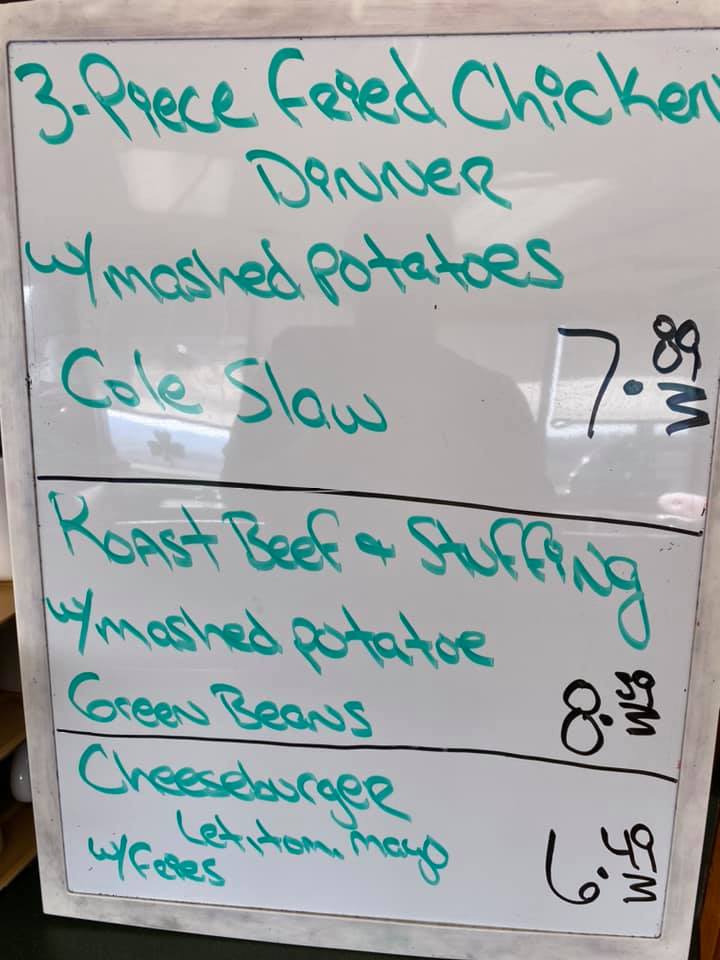 3-Piece Fried Chicken
Dinner
w/mashed potatoes
Cole Slaw 7.
Roast Beef & Stuffing
w/mashed potatoe
Green Beans 8.
Cheeseburger
Let, tom, mayo
w/Fries 6.